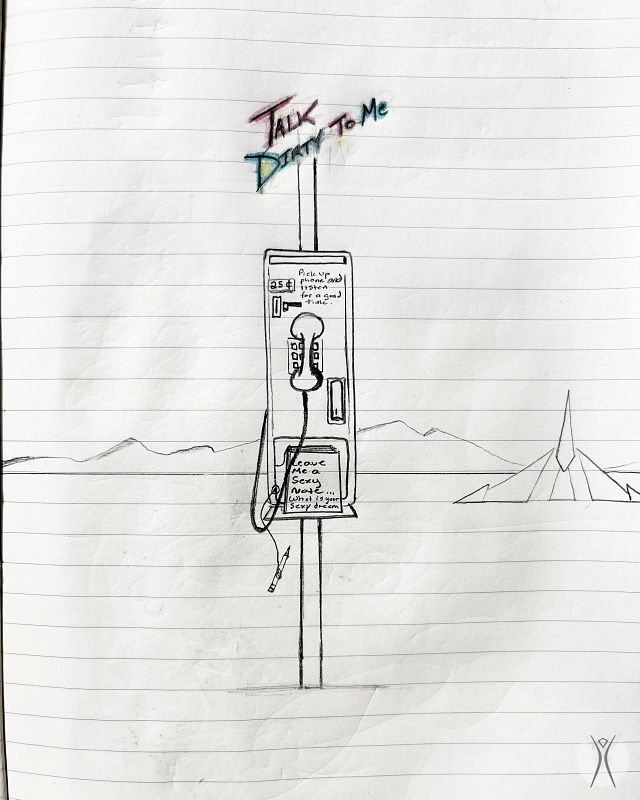 TALK
DIRTY TO Me
25¢
Pick up
phone and
listen
for a good
time.
Leave
Me a
Sexy
Note...
What is your
Sexy dream